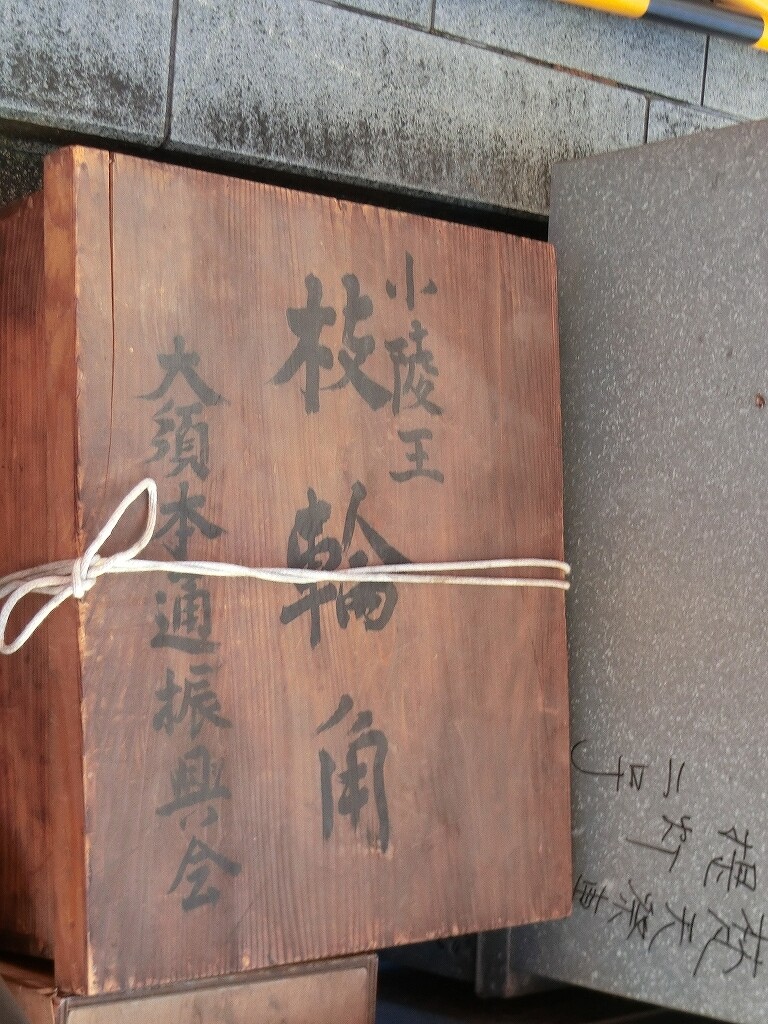 小陵王
枝輪角
大須本通振興会
提灯